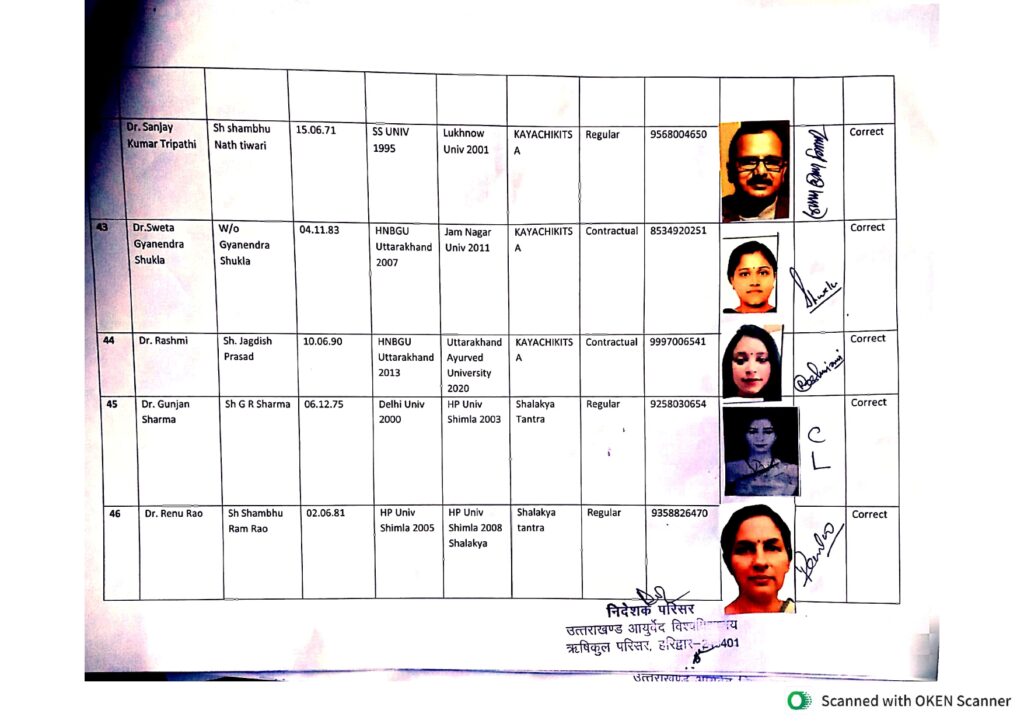 Dr. Sanjay Kumar Tripathi
Sh shambhu Nath tiwari
15.06.71
SS UNIV 1995
Lukhnow Univ 2001
KAYACHIKITS A
Regular
9568004650
Correct
43
Dr.Sweta Gyanendra Shukla
W/o Gyanendra Shukla
04.11.83
HNBGU Uttarakhand 2007
Jam Nagar Univ 2011
KAYACHIKITS A
Contractual
8534920251
Correct
44
Dr. Rashmi
Sh. Jagdish Prasad
10.06.90
HNBGU Uttarakhand 2013
Uttarakhand Ayurved University 2020
KAYACHIKITS A
Contractual
9997006541
Correct
45
Dr. Gunjan Sharma
Sh G R Sharma
06.12.75
Delhi Univ 2000
HP Univ Shimla 2003
Shalakya Tantra
Regular
9258030654
CL
Correct
46
Dr. Renu Rao
Sh Shambhu Ram Rao
02.06.81
HP Univ Shimla 2005
HP Univ Shimla 2008 Shalakya
Shalakya tantra
Regular
9358826470
Correct
निदेशक परिसर
उत्तराखण्ड आयुर्वेद
ऋषिकुल परिसर, हरिद्वार
उत्तराखण्ड
Scanned with OKEN Scanner